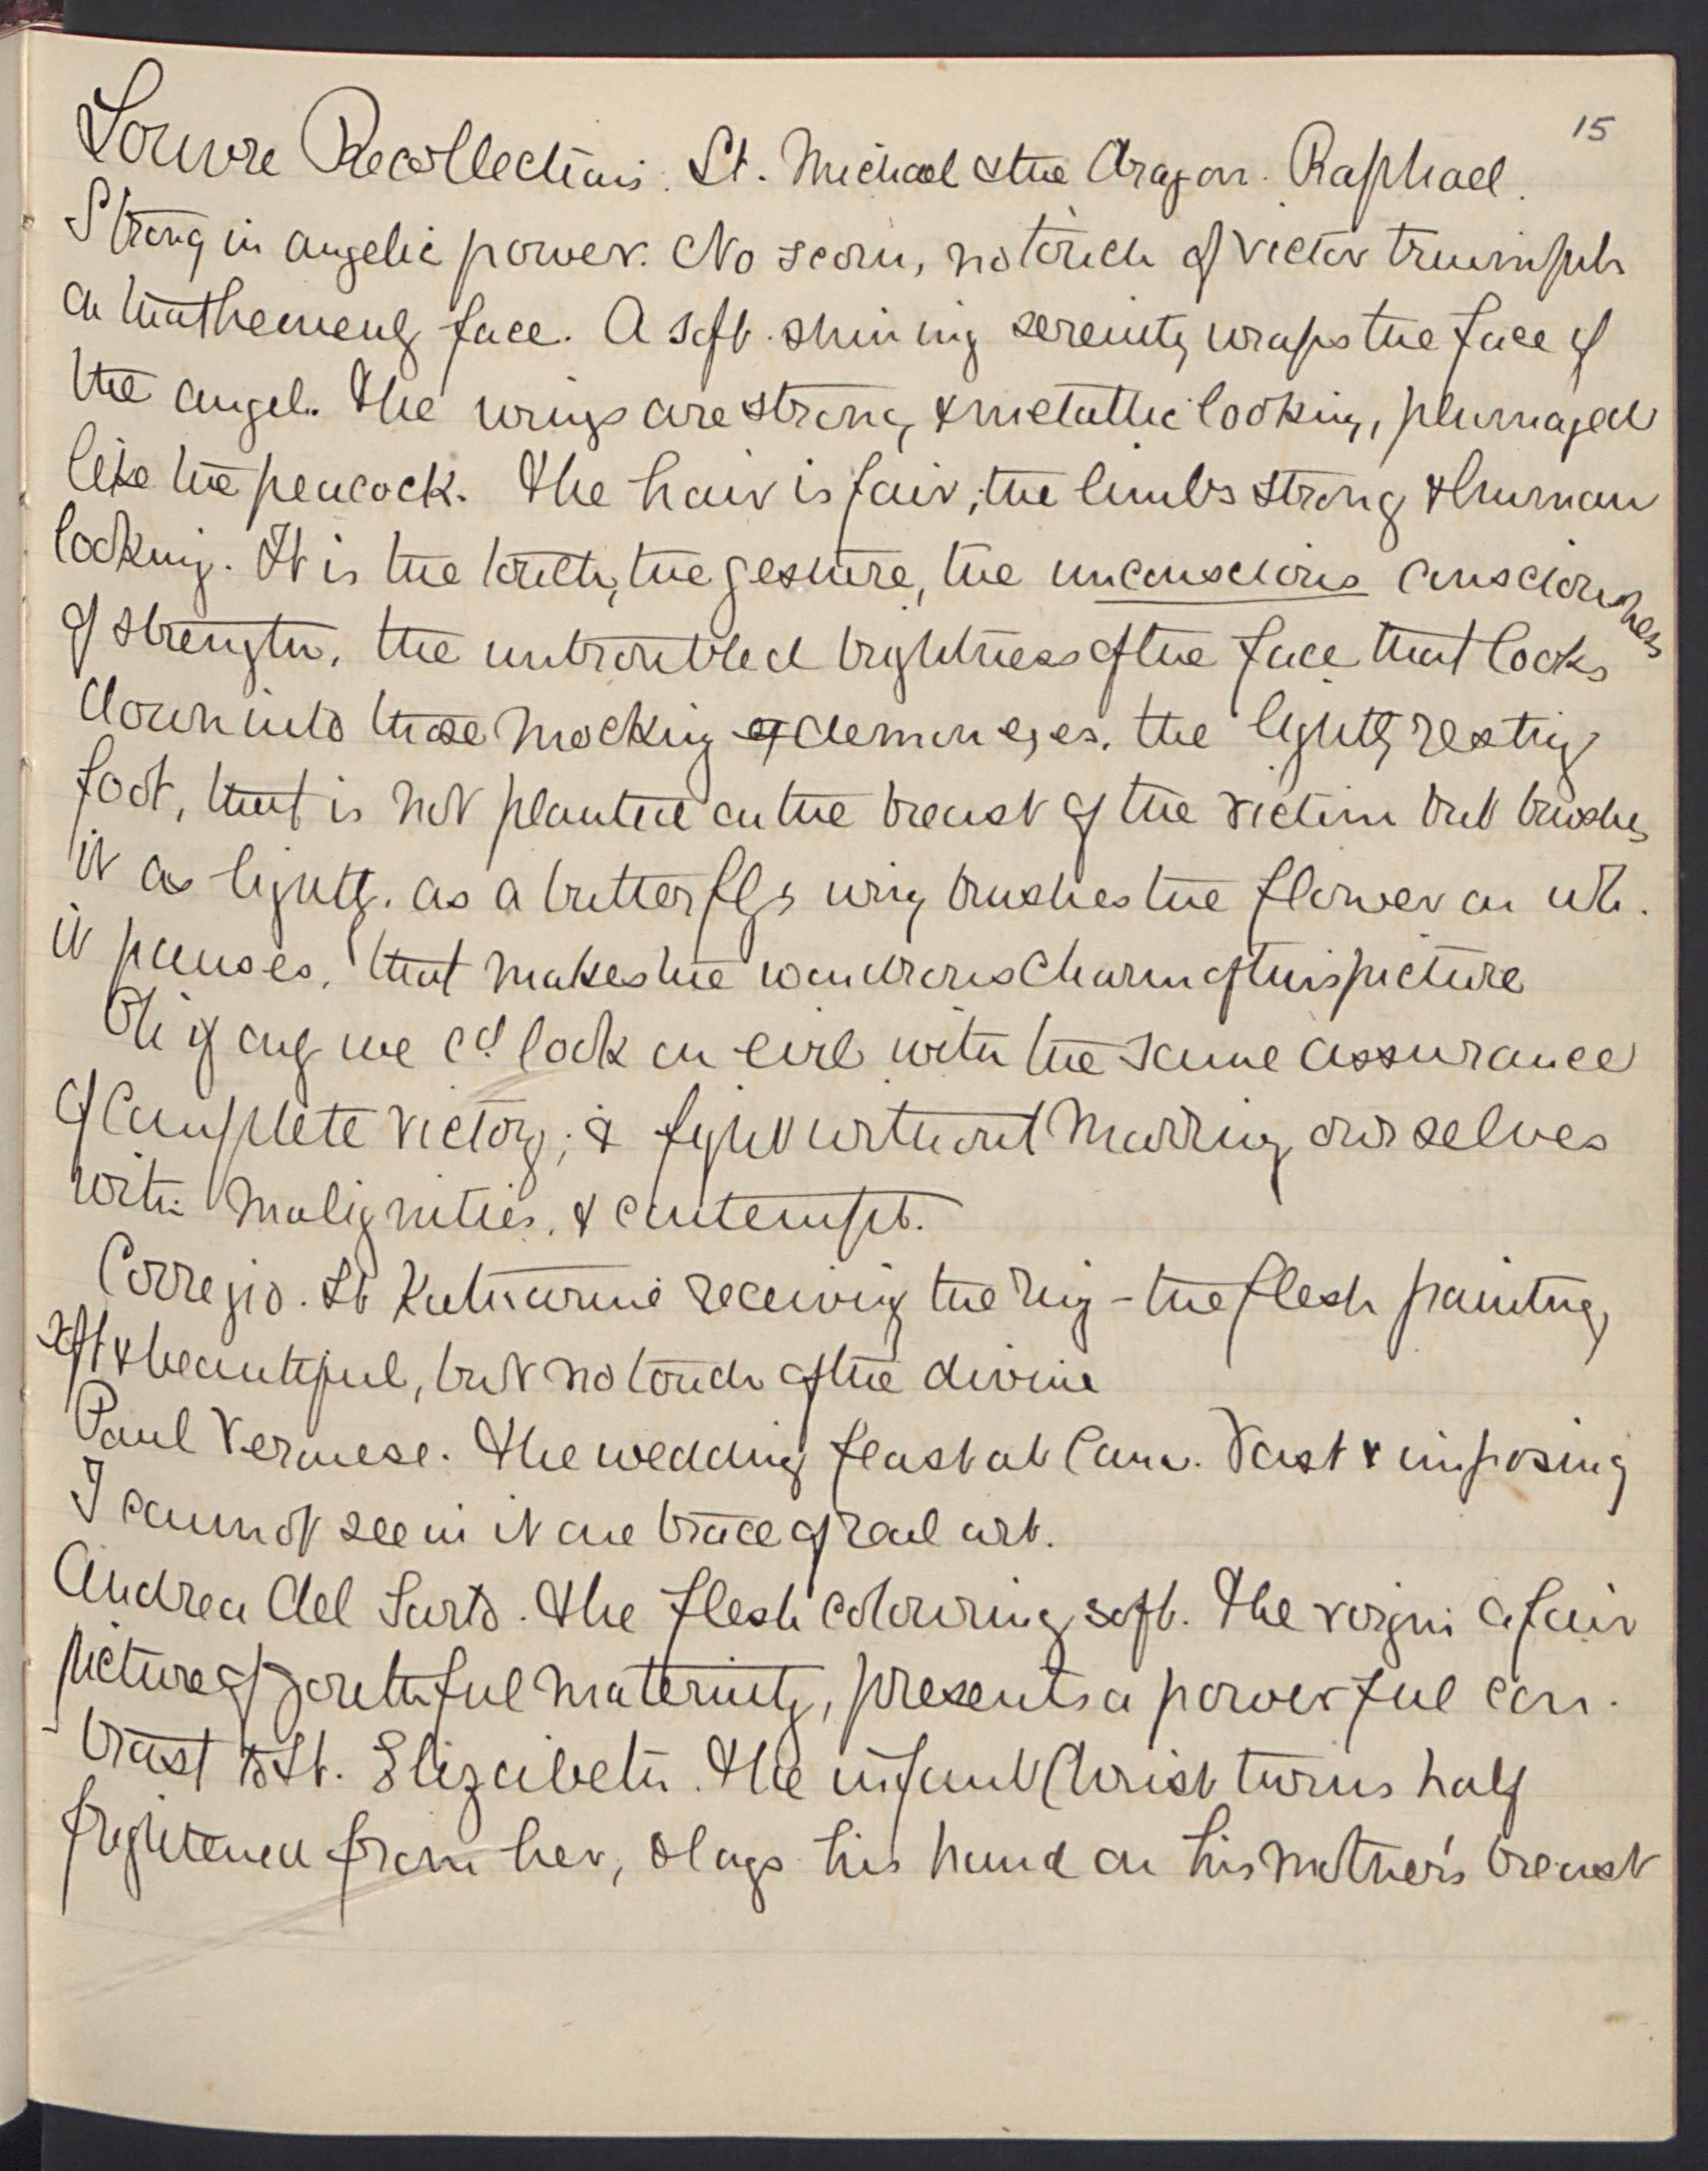 15
Louvre Recollections. St. Michael & the Dragon. Raphael.
Strong in angelic power. No scorn, no touch of victor triumph
on that heavenly face. A soft shining serenity wraps the face of
the angel. The wings are strong & metallic looking, plumaged
like the peacock. The hair is fair, the limbs strong & human
looking. It is the youth, the gesture, the unconscious consciousness
of strength, the untroubled brightness of the face that looks
down into those mocking demon eyes. the lightly resting
foot, that is not planted on the breast of the victim but brushes
it as lightly as a butterfly's wing brushes the flower on wh.
it pauses, that makes the wondrous charm of this picture
Oh if only we cd. look on evil with the same assurance
of complete victory; & fight without marring ourselves
with malignities & contempt.
Corregio. St Katharine receiving the ring - the flesh painting
soft & beautiful, but no touch of the divine
Paul Veronese. The wedding feast at Cana. Vast & imposing
I cannot see in it one trace of real art.
Andrea del Sarto. The flesh colouring soft. The virgin a fair
picture of youthful maternity, presents a powerful con-
trast to St. Elizabeth. The infant Christ turns half
frightened from her, & lays his hand on his mother's breast